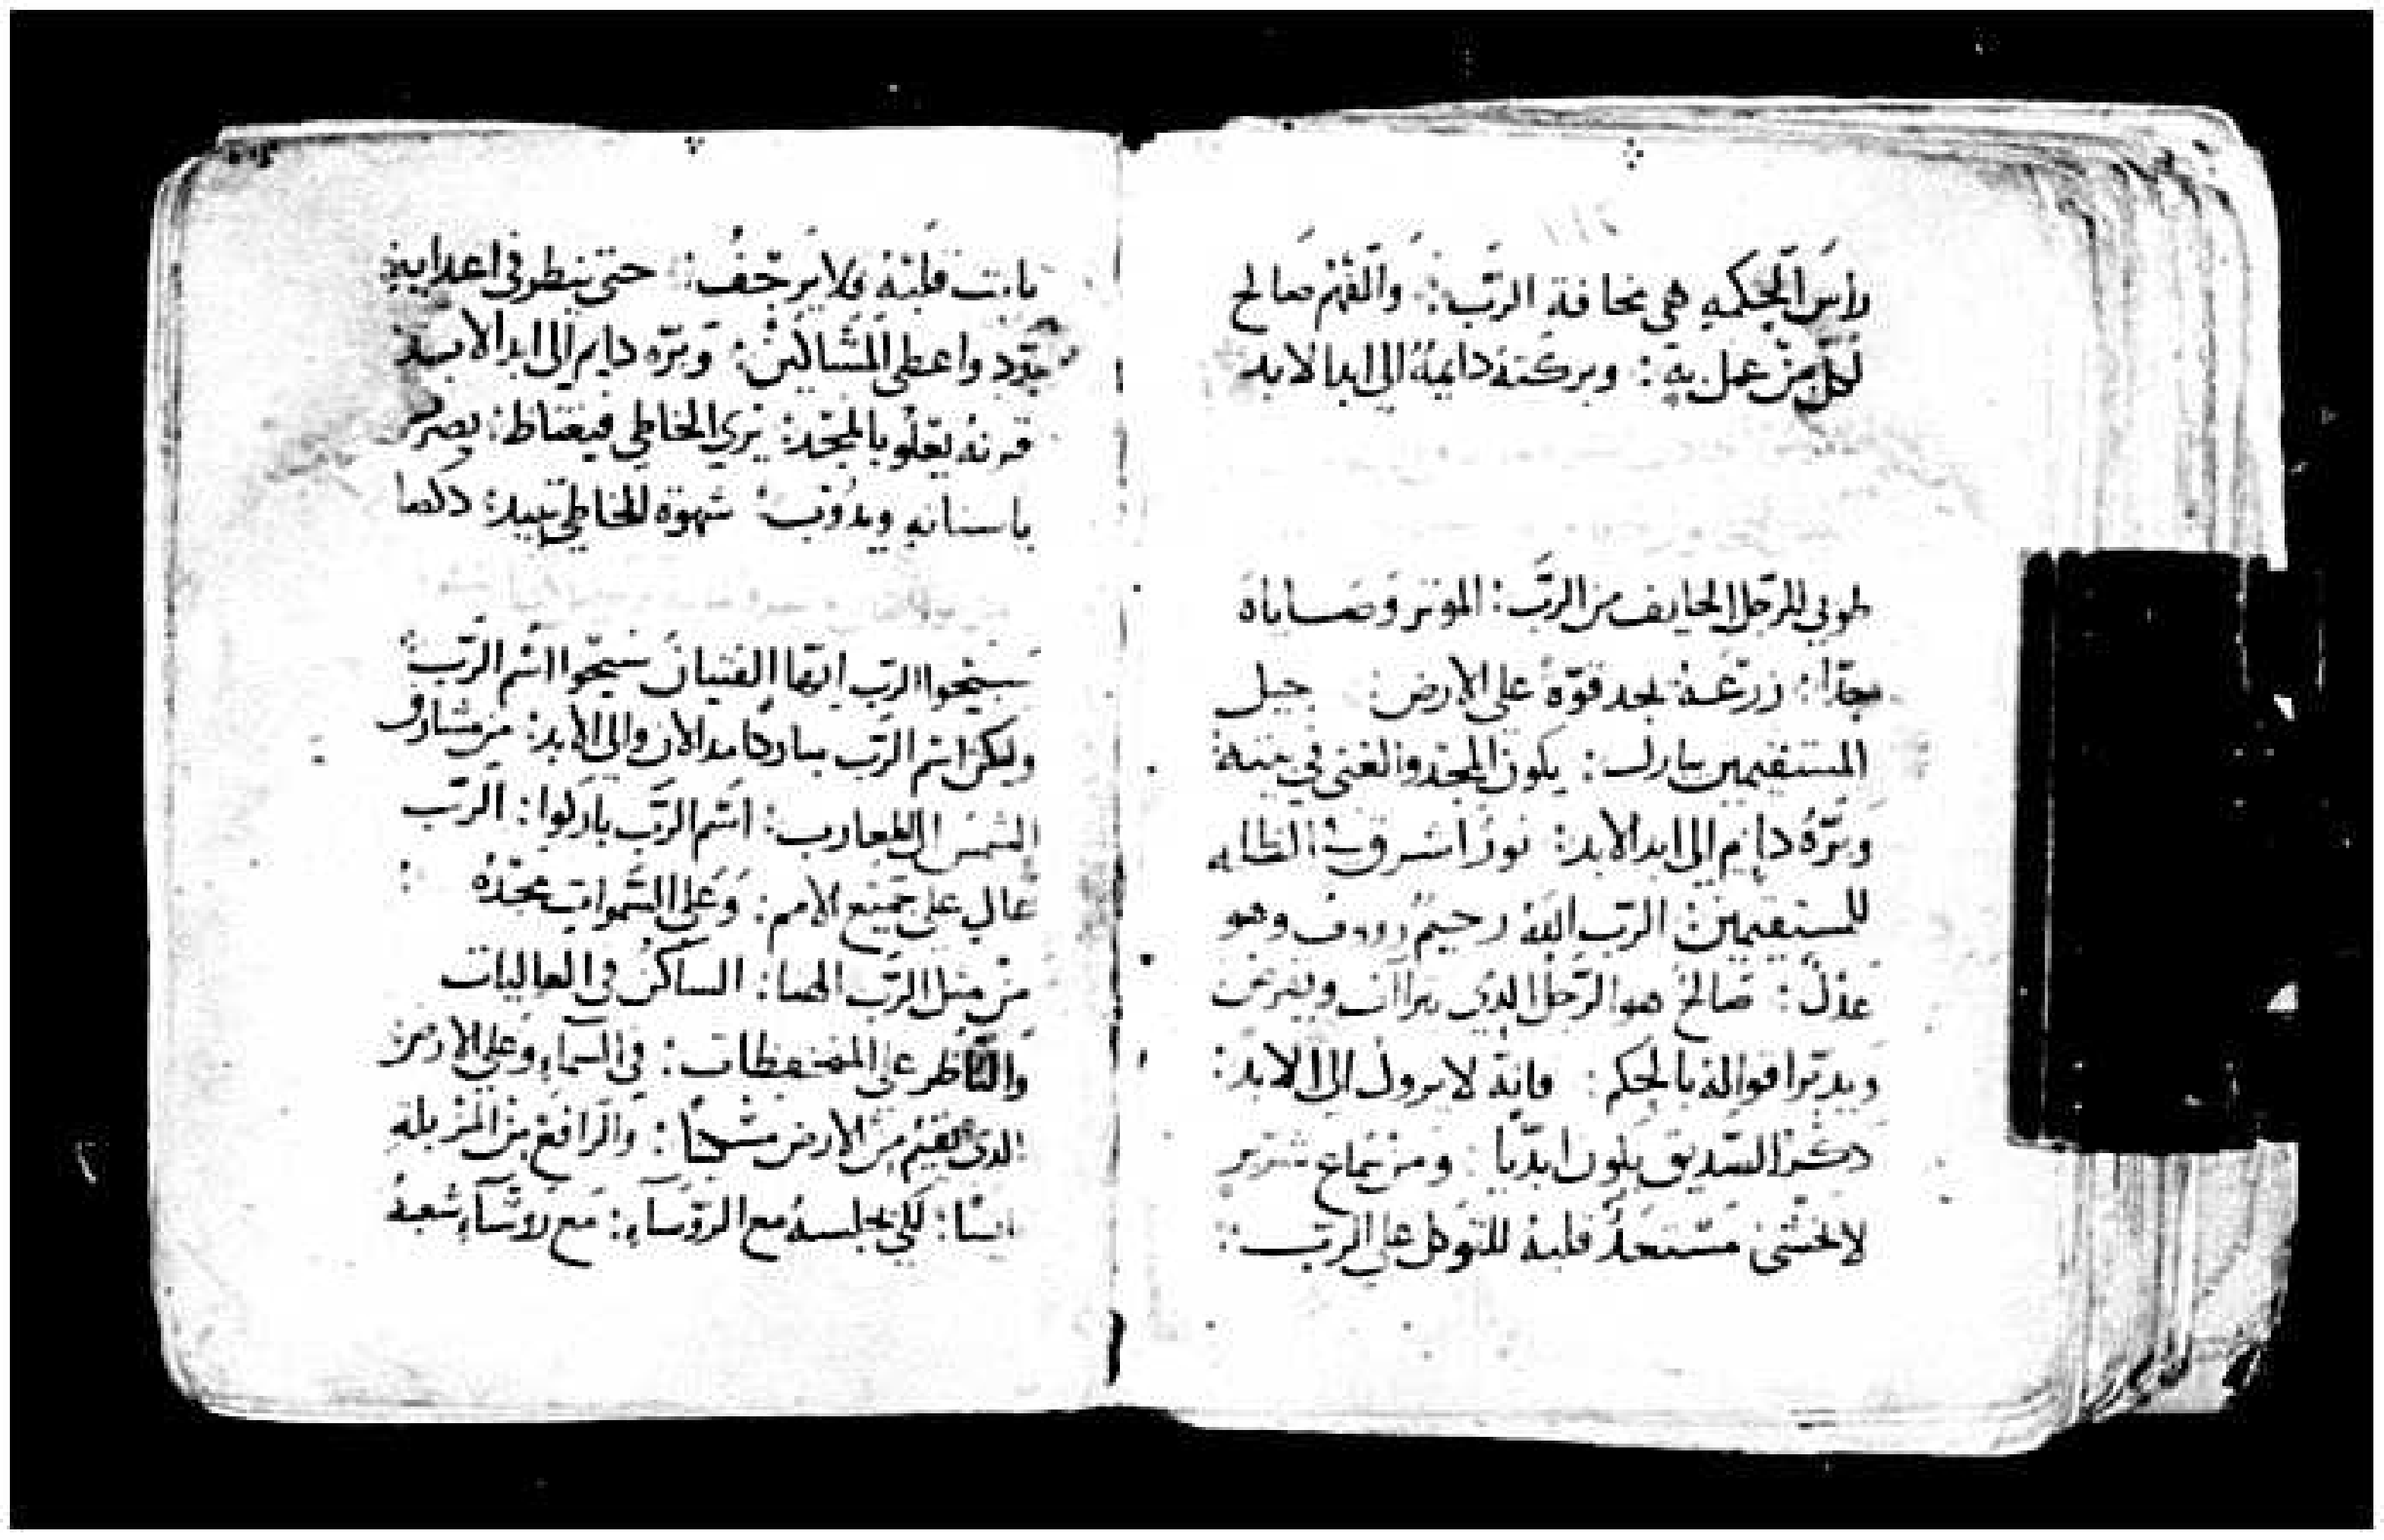 راس الحكمه هي مخافة الرب: والفهم صالح
لكل من عمل به: وبركته دايمة الى ابد الابد
طوبي للرجل الخايف من الرب: الموثر وصاياه
جدا: زرعه يجد قوة على الارض: جيل
المستقيمين يبارك: يكون المجد والغنى في بيته
وبره دايم الى ابد الابد: نور اشرق في الظلمه
للمستقيمين: الرب الله رحيم رووف وهو
عدل: صالح هو الرجل الذي يتراف ويقرض
ويدبر اقواله بالحكم: فانه لا يزول الى الابد:
ذكر الصديق يكون ابديا: ومن سماع شرير
لا يخشى مستعد قلبه للتوكل على الرب:
ثابت قلبه ولا يرجف: حتى ينظر في اعدايه
بدد واعطى المساكين: وبره دايم الى ابد الابد
قرنه يعلو بالمجد: يري الخاطي فيغتاظ: يصر
باسنانه ويذوب: شهوة الخاطي تبيد:
سبحوا الرب ايها الفتيان سبحوا اسم الرب:
وليكن اسم الرب مباركا من الان والى الابد: من مشارق
الشمس الى المغارب: اسم الرب باركوا: الرب
عال على جميع الامم: وعلى السموات مجده:
من مثل الرب الهنا: الساكن في العاليات
والناظر على المنخفظات: في السماء وعلى الارض
الذي يقيم من الارض مسكينا: والرافع من المزبلة
بايسا: لكي يجلسه مع الروساء: مع روساء شعبه